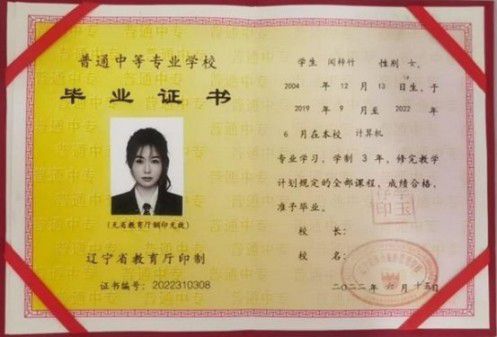 普通中等专业学校
毕业证书
(无省教育厅钢印无效)
辽宁省教育厅印制
证书编号：2022310308
学生 闵梓竹 性别 女，
2004 年 12 月 13 日生，于
2019 年 9 月至 2022
年 6 月在本校 计算机
专业学习，学制 3 年，修完教学
计划规定的全部课程，成绩合格，
准予毕业。
校 长：
校 名：
二〇二二年 六 月 十五日